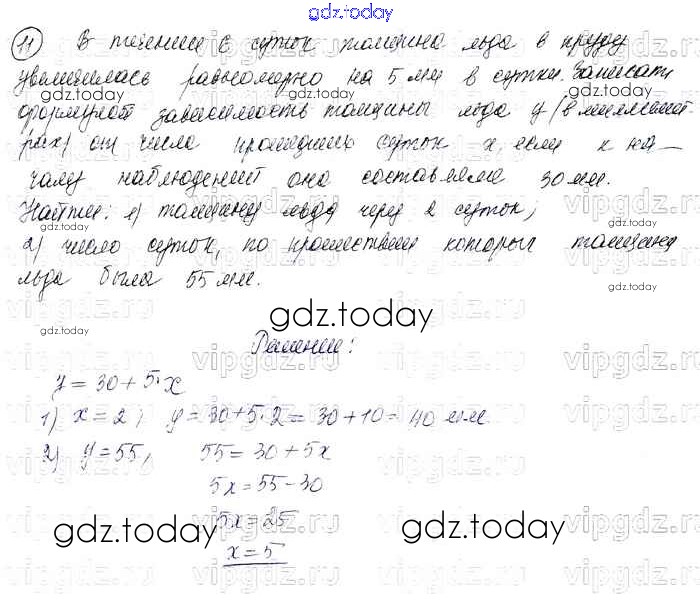 gdz.today
11 В течении 6 суток толщина льда в пруду
увеличилась равномерно на 5 мм в сутки. Записать
формулой зависимость толщины льда y (в миллимет-
рах) от числа прошедших суток x, если к на-
чалу наблюдений она составляла 30 мм.
Найти: 1) толщину льда через 2 суток;
2) число суток, по прошествии которых толщина
льда была 55 мм.
Решение:
y = 30 + 5·x
1) x = 2; y = 30 + 5·2 = 30 + 10 = 40 мм.
2) y = 55, 55 = 30 + 5x
5x = 55 - 30
5x = 25
x = 5
gdz.today
gdz.today
gdz.today
gdz.today
gdz.today
gdz.today
gdz.today
gdz.today
vipgdz.ru
vipgdz.ru
vipgdz.ru